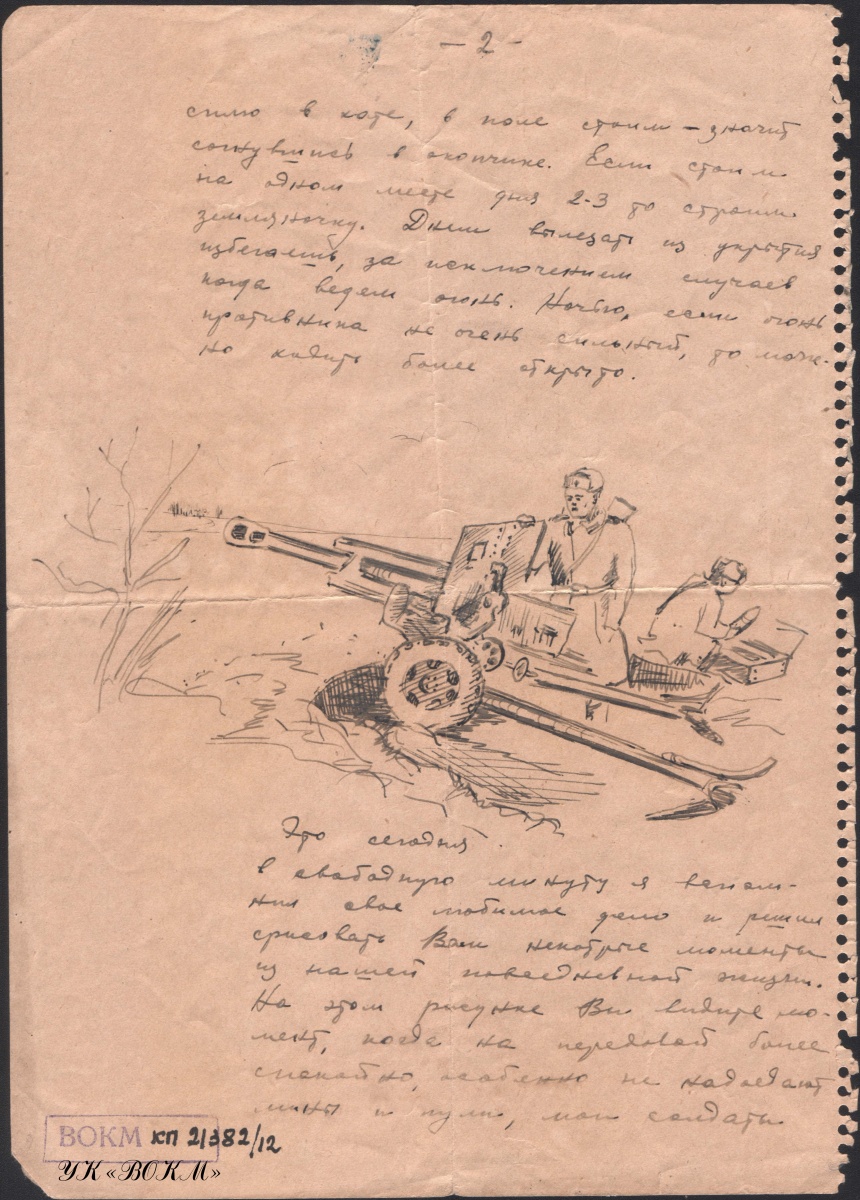 - 2 -
сплю в хате, в поле стоим – значит
согнувшись в окопчике. Если стоим
на одном месте дня 2-3 то строим
земляночку. Днем вылезать из укрытия
избегаешь, за исключением случаев
когда ведем огонь. Ночью, если огонь
противника не очень сильный, то мож-
но ходить более открыто.
Это сегодня
в свободную минуту я вспом-
нил свое любимое дело и решил
срисовать Вам некотрые моменты
из нашей повседневной жизни.
На этом рисунке Вы видите мо-
мент, когда на передовой более
спокойно, особенно не надоедают
мины и пули, мои солдаты
ВОКМ КП 21382/12
УК «ВОКМ»